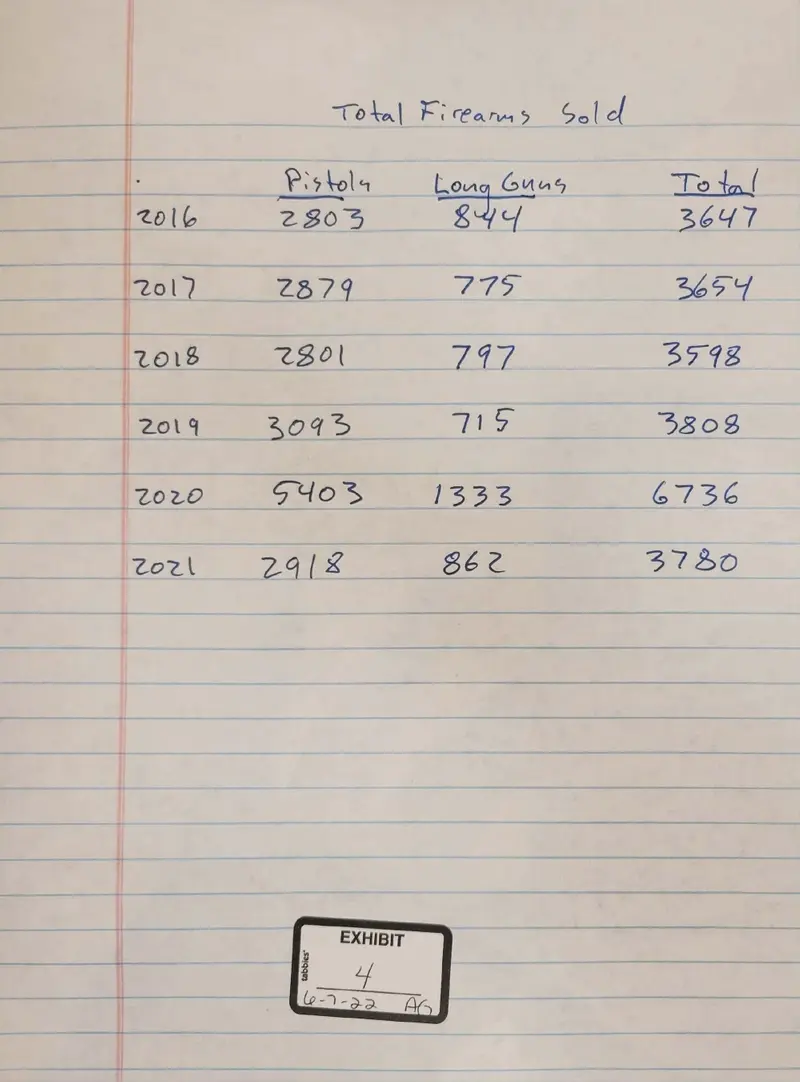 Total Firearms Sold
Pistols Long Guns Total
2016 2803 844 3647
2017 2879 775 3654
2018 2801 797 3598
2019 3093 715 3808
2020 5403 1333 6736
2021 2918 862 3780
EXHIBIT
tabbies®
4
6-7-22 AG